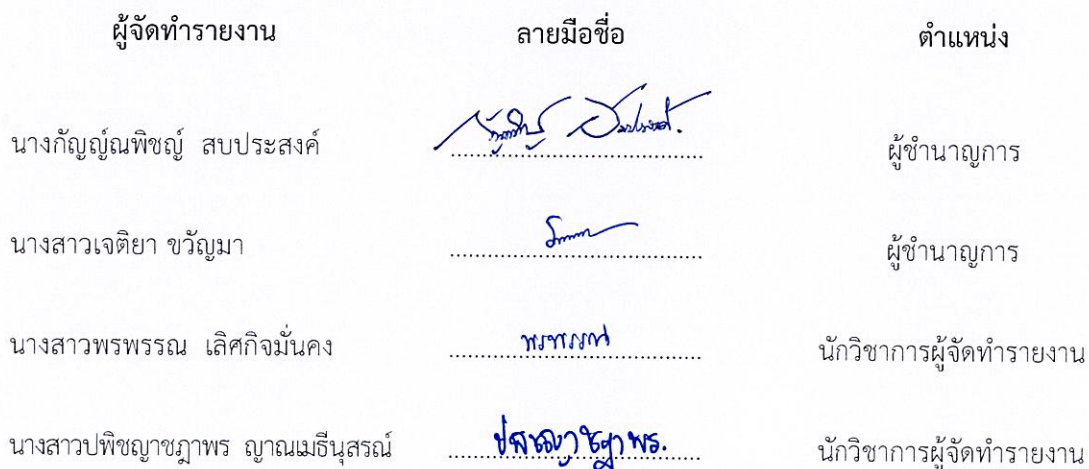 ผู้จัดทำรายงาน ลายมือชื่อ ตำแหน่ง
นางกัญญ์ณพิชญ์ สบประสงค์ ผู้ชำนาญการ
นางสาวเจติยา ขวัญมา ผู้ชำนาญการ
นางสาวพรพรรณ เลิศกิจมั่นคง พรพรรณ นักวิชาการผู้จัดทำรายงาน
นางสาวปพิชญาชฎาพร ญาณเมธีนุสรณ์ นักวิชาการผู้จัดทำรายงาน